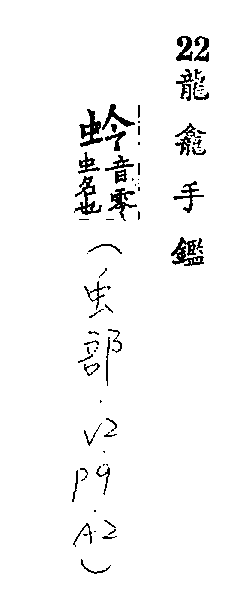 22 龍龕手鑑
蛉音零虫名也
(虫部.V2.P9.A2)